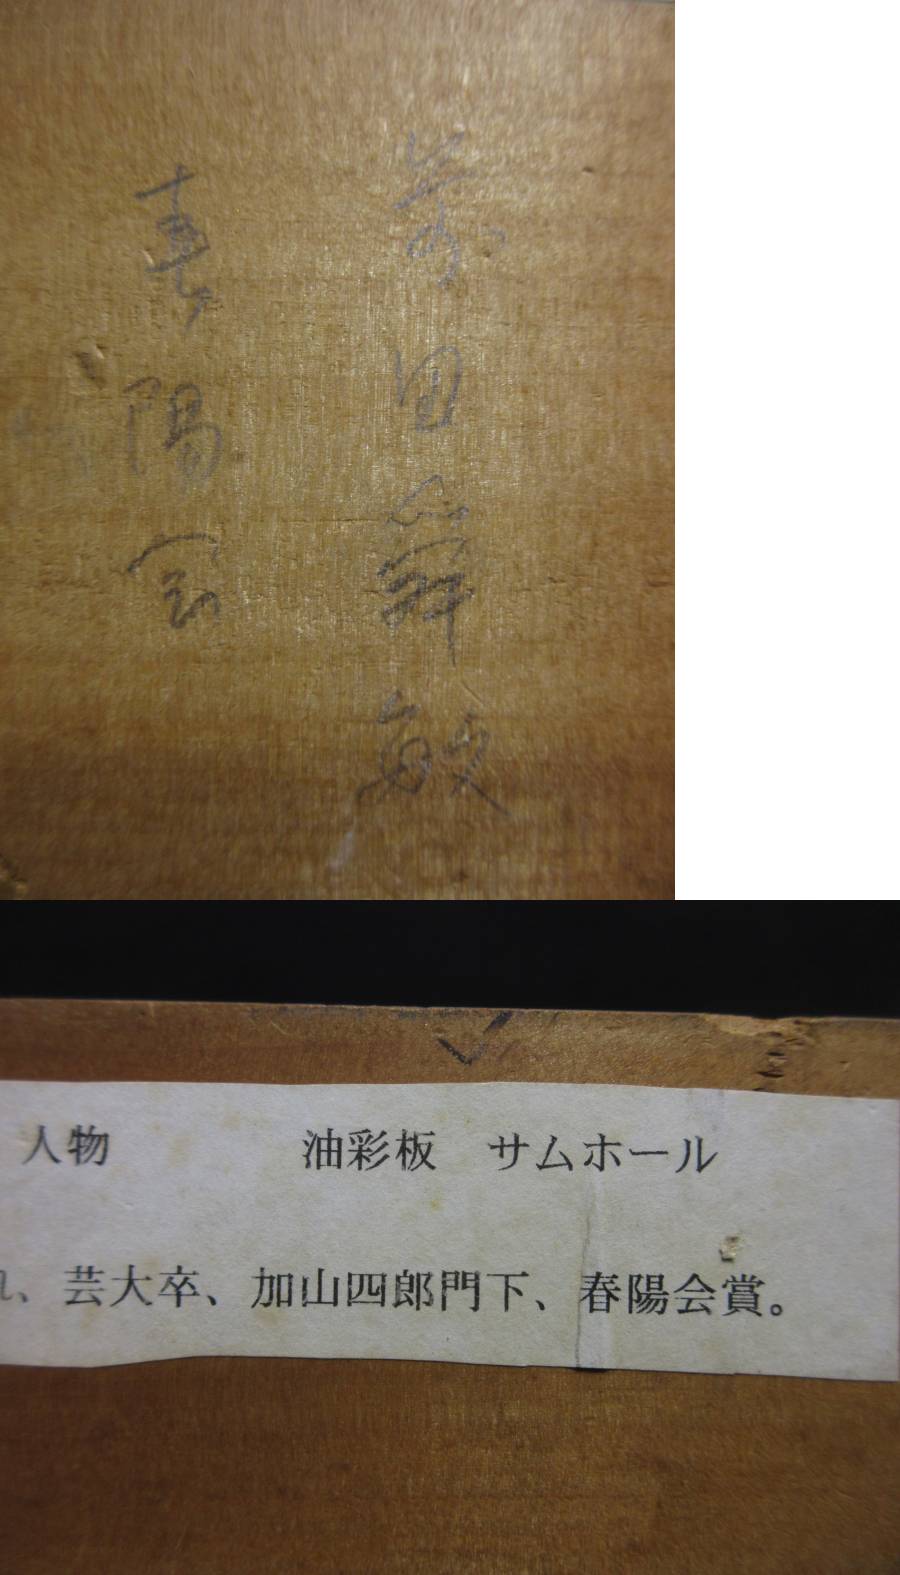 前田舜敏
春陽会
人物 油彩板 サムホール
れ、芸大卒、加山四郎門下、春陽会賞。